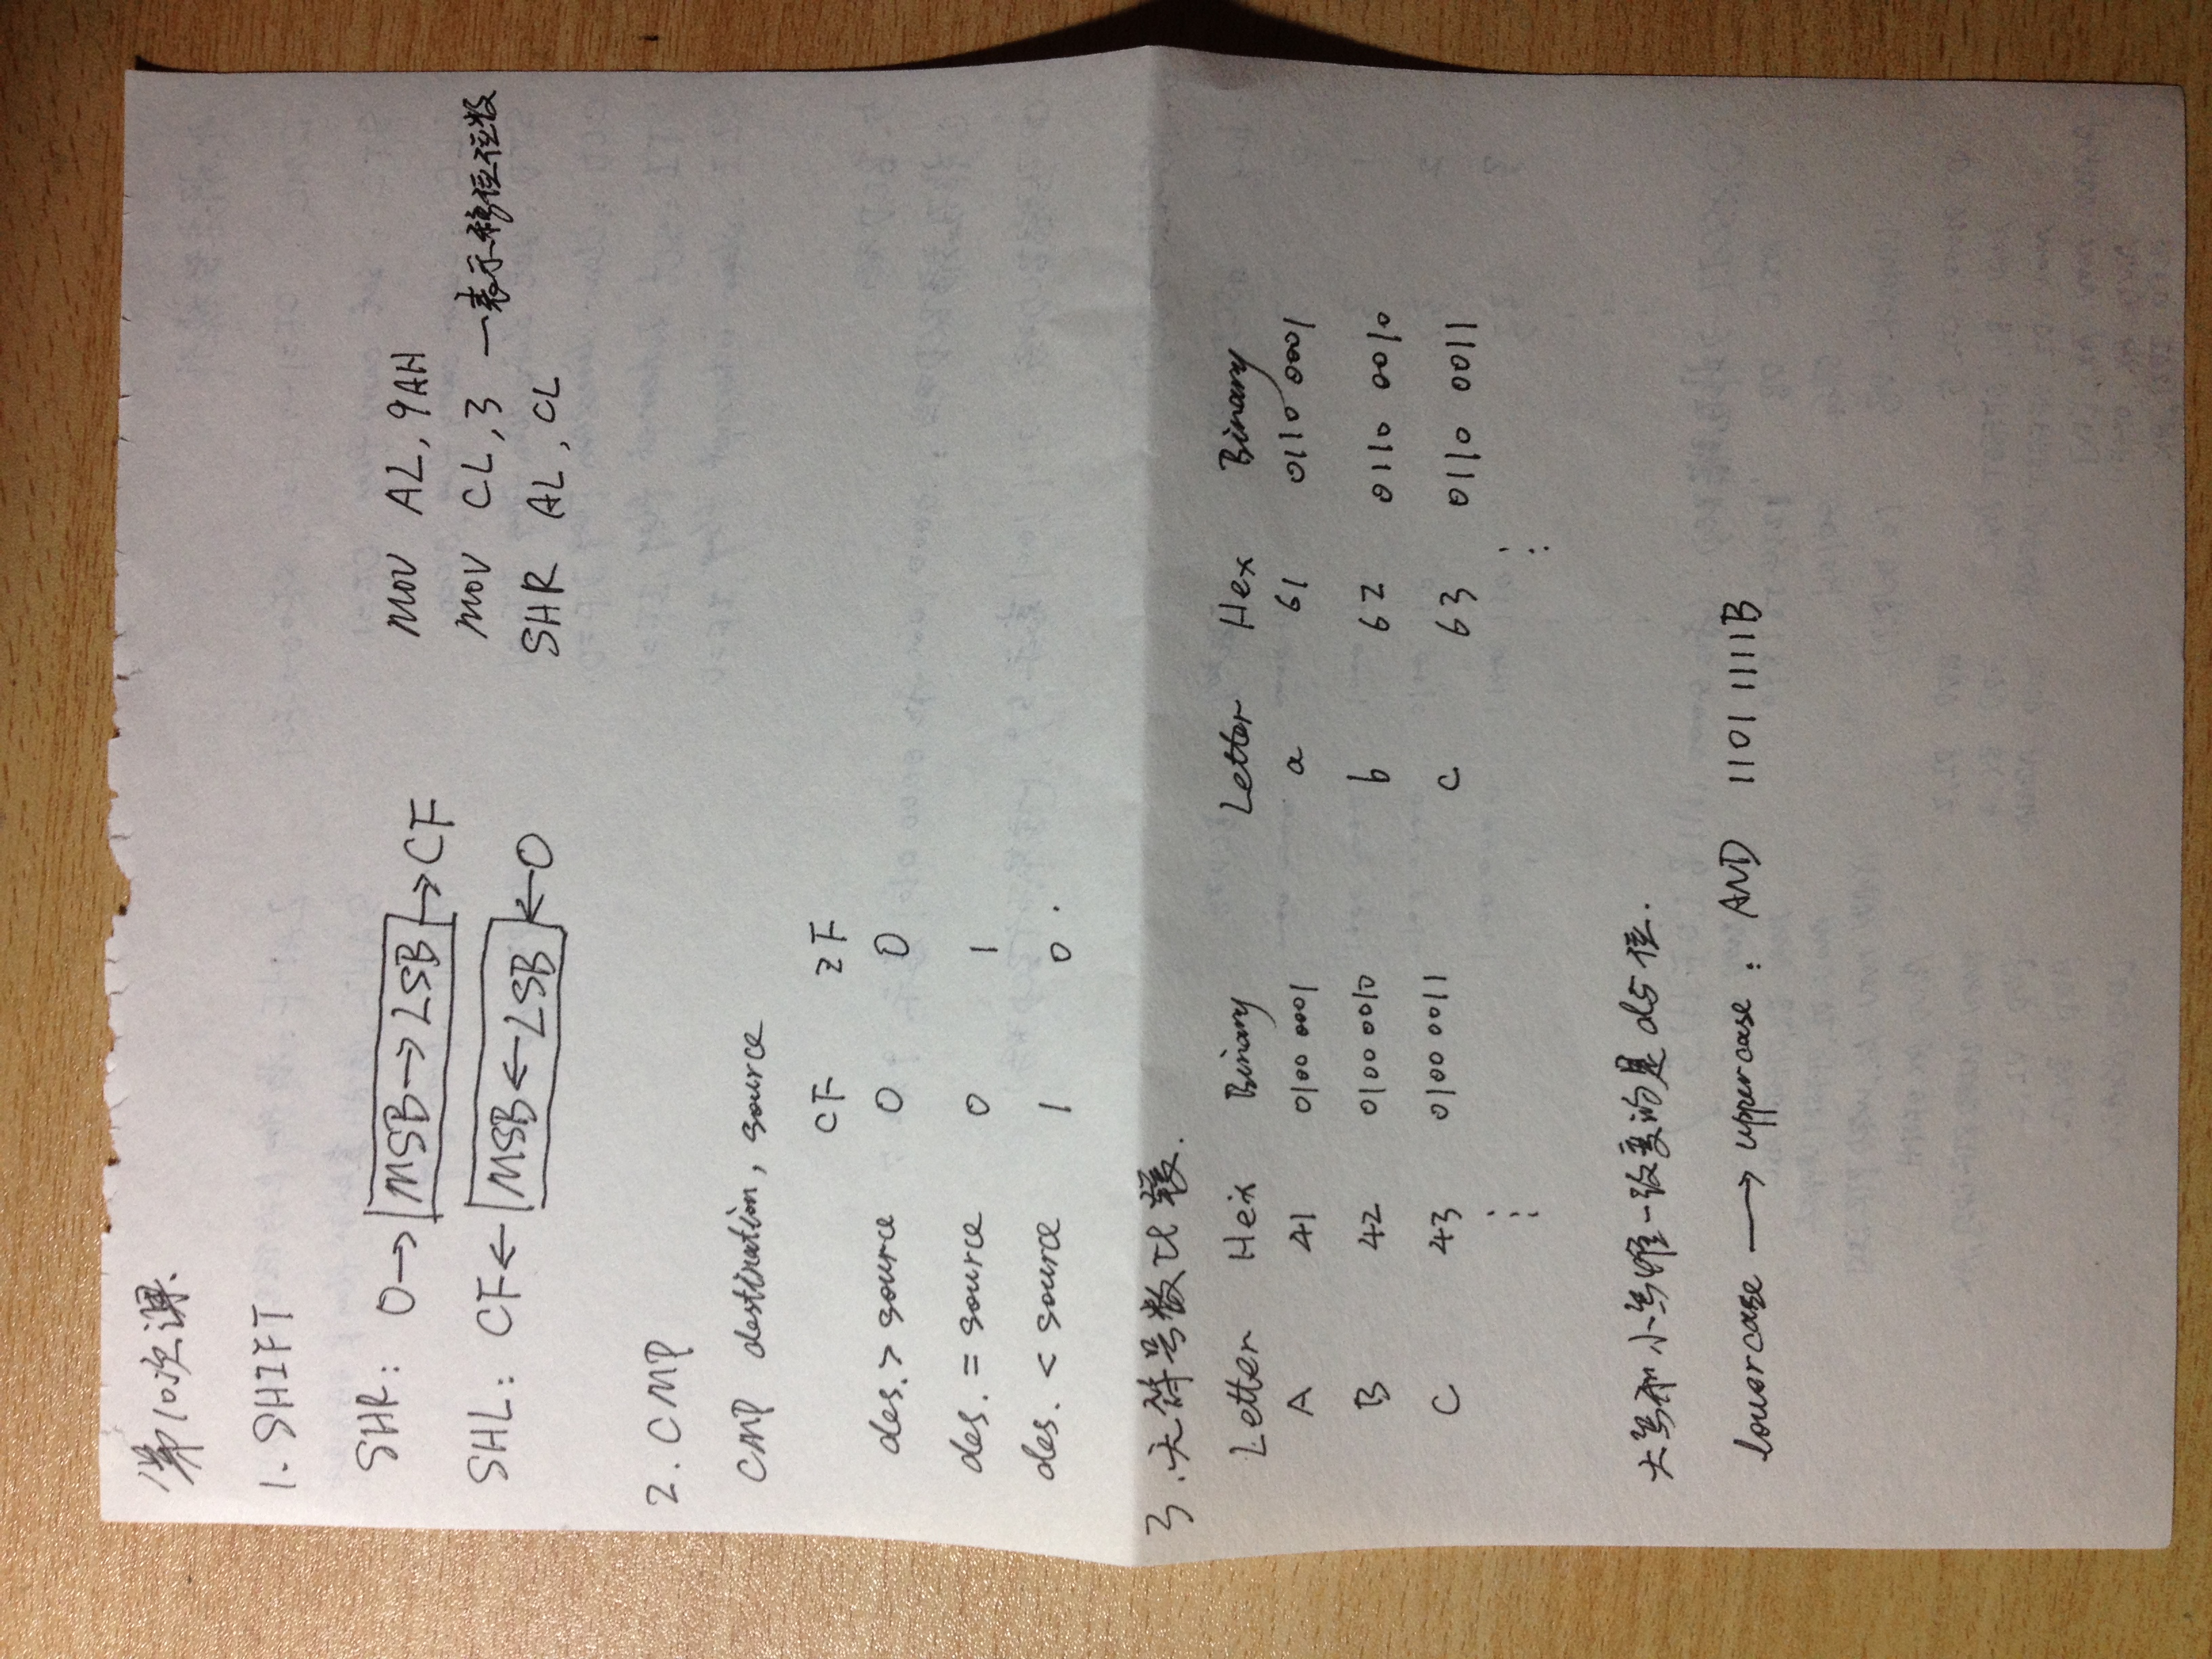 第10次课.
1. SHIFT
SHR: 0→ MSB→LSB →CF
SHL: CF← MSB←LSB ←0
MOV AL, 9AH
MOV CL, 3 —表示移位位数
SHR AL, CL
2. CMP
CMP destination, source
CF ZF
des. > source 0 0
des. = source 0 1
des. < source 1 0.
3. 无符号数比较.
Letter Hex Binary Letter Hex Binary
A 41 0100 0001 a 61 0110 0001
B 42 0100 0010 b 62 0110 0010
C 43 0100 0011 c 63 0110 0011
⋮ ⋮
大写和小写唯一改变的是d5位.
lowercase → uppercase: AND 1101 1111B